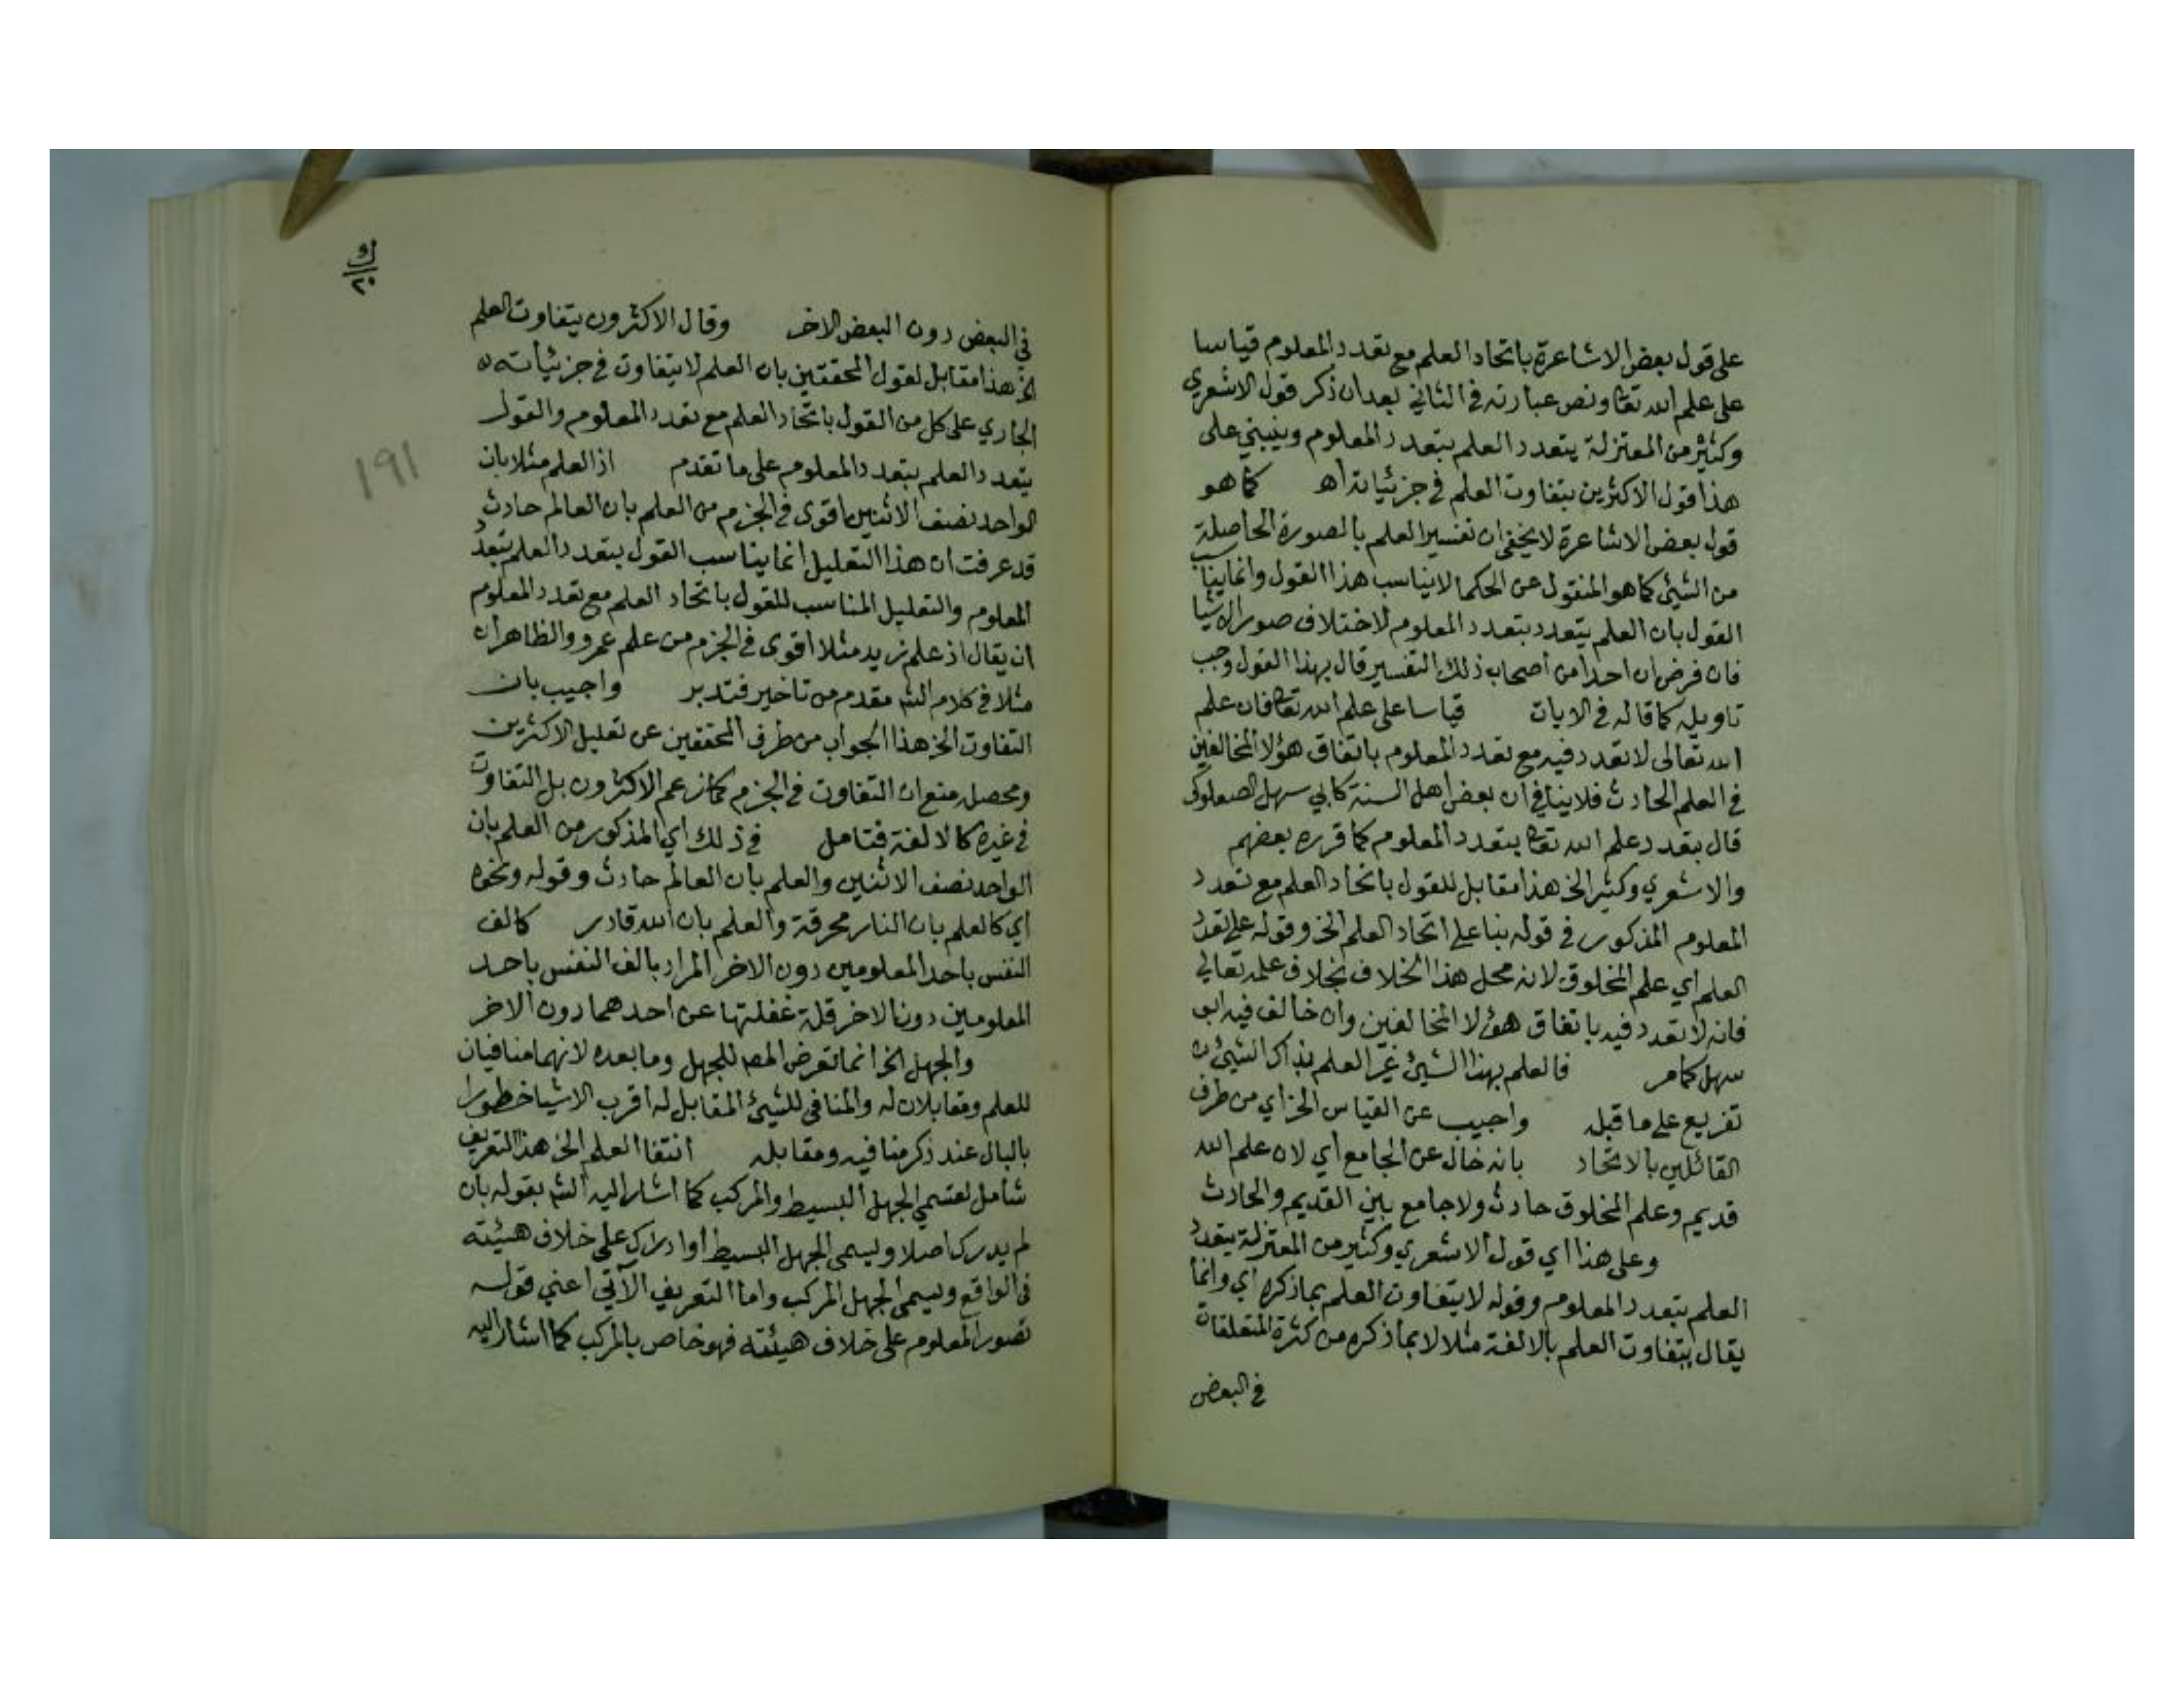 على قول بعض الاشاعرة باتحاد العلم مع تعدد المعلوم قياسا
على علم الله تعا ونص عبارته في الثاني بعد ان ذكر قول الاشعري
وكثير من المعتزلة يتعدد العلم بتعدد المعلوم وينبني على
هذا قول الاكثرين بتفاوت العلم في جزئياته اه كما هو
قول بعض الاشاعرة لا يخفى ان تفسير العلم بالصورة الحاصلة
من الشيئ كما هو المنقول عن الحكما لا يناسب هذا القول وانما يناسب
القول بان العلم يتعدد بتعدد المعلوم لاختلاف صور الاشيا
فان فرض ان احدا من اصحاب ذلك التفسير قال بهذا القول وجب
تاويله كما قاله في الايات قياسا على علم الله تعا فان علم
الله تعالى لا تعدد فيه مع تعدد المعلوم باتفاق هؤلا المخالفين
في العلم الحادث فلا ينافي ان بعض اهل السنة كابي سهل الصعلوكي
قال بتعدد علم الله تعا بتعدد المعلوم كما قرره بعضهم
والاشعري وكثير الخ هذا مقابل للقول باتحاد العلم مع تعدد
المعلوم المذكور في قوله بنا على اتحاد العلم الخ وقوله على تعدد
العلم اي علم المخلوق لانه محل هذا الخلاف بخلاف علمه تعالى
فانه لا تعدد فيه باتفاق هؤلا المخالفين وان خالف فيه ابو
سهل كما مر فالعلم بهذا الشيئ غير العلم بذاك الشيئ
تفريع على ما قبله واجيب عن القياس الخ اي من طرف
القائلين بالاتحاد بانه خال عن الجامع اي لان علم الله
قديم وعلم المخلوق حادث ولا جامع بين القديم والحادث
وعلى هذا اي قول الاشعري وكثير من المعتزلة يتعدد
العلم بتعدد المعلوم وقوله لا يتفاوت العلم بما ذكره اي وانما
يقال بتفاوت العلم بالالفة مثلا لا بما ذكره من كثرة المتعلقات
في البعض
ك
٢٠
١٩١
في البعض دون البعض الاخر وقال الاكثرون يتفاوت العلم
الخ هذا مقابل لقول المحققين بان العلم لا يتفاوت في جزئياته
الجاري على كل من القول باتحاد العلم مع تعدد المعلوم والقول
يتعدد العلم بتعدد المعلوم على ما تقدم اذ العلم مثلا بان
الواحد نصف الاثنين اقوى في الجزم من العلم بان العالم حادث
قد عرفت ان هذا التعليل انما يناسب القول بتعدد العلم بتعدد
المعلوم والتعليل المناسب للقول باتحاد العلم مع تعدد المعلوم
ان يقال اذ علم زيد مثلا اقوى في الجزم من علم عمرو والظاهر ان
مثلا في كلام الشم مقدم من تاخير فتدبر واجيب بان
التفاوت الخ هذا الجواب من طرف المحققين عن تعليل الاكثرين
ومحصله منع ان التفاوت في الجزم كما زعم الاكثرون بل التفاوت
في غيره كالالفة فتامل في ذلك اي المذكور من العلم بان
الواحد نصف الاثنين والعلم بان العالم حادث وقوله ونحوه
اي كالعلم بان النار محرقة والعلم بان الله قادر كالف
النفس باحد المعلومين دون الاخر المراد بالف النفس باحد
المعلومين دون الاخر قلة غفلتها عن احدهما دون الاخر
والجهل الخ انما تعرض المص للجهل وما بعده لانهما منافيان
للعلم ومقابلان له والمنافي للشيئ المقابل له اقرب الاشيا خطورا
بالبال عند ذكر منافيه ومقابله انتفا العلم الخ هذا التعريف
شامل لقسمي الجهل البسيط والمركب كما اشار اليه الشم بقوله بان
لم يدرك اصلا ويسمى الجهل البسيط او ادرك على خلاف هيئته
في الواقع ويسمى الجهل المركب واما التعريف الآتي اعني قوله
تصور المعلوم على خلاف هيئته فهو خاص بالمركب كما اشار اليه